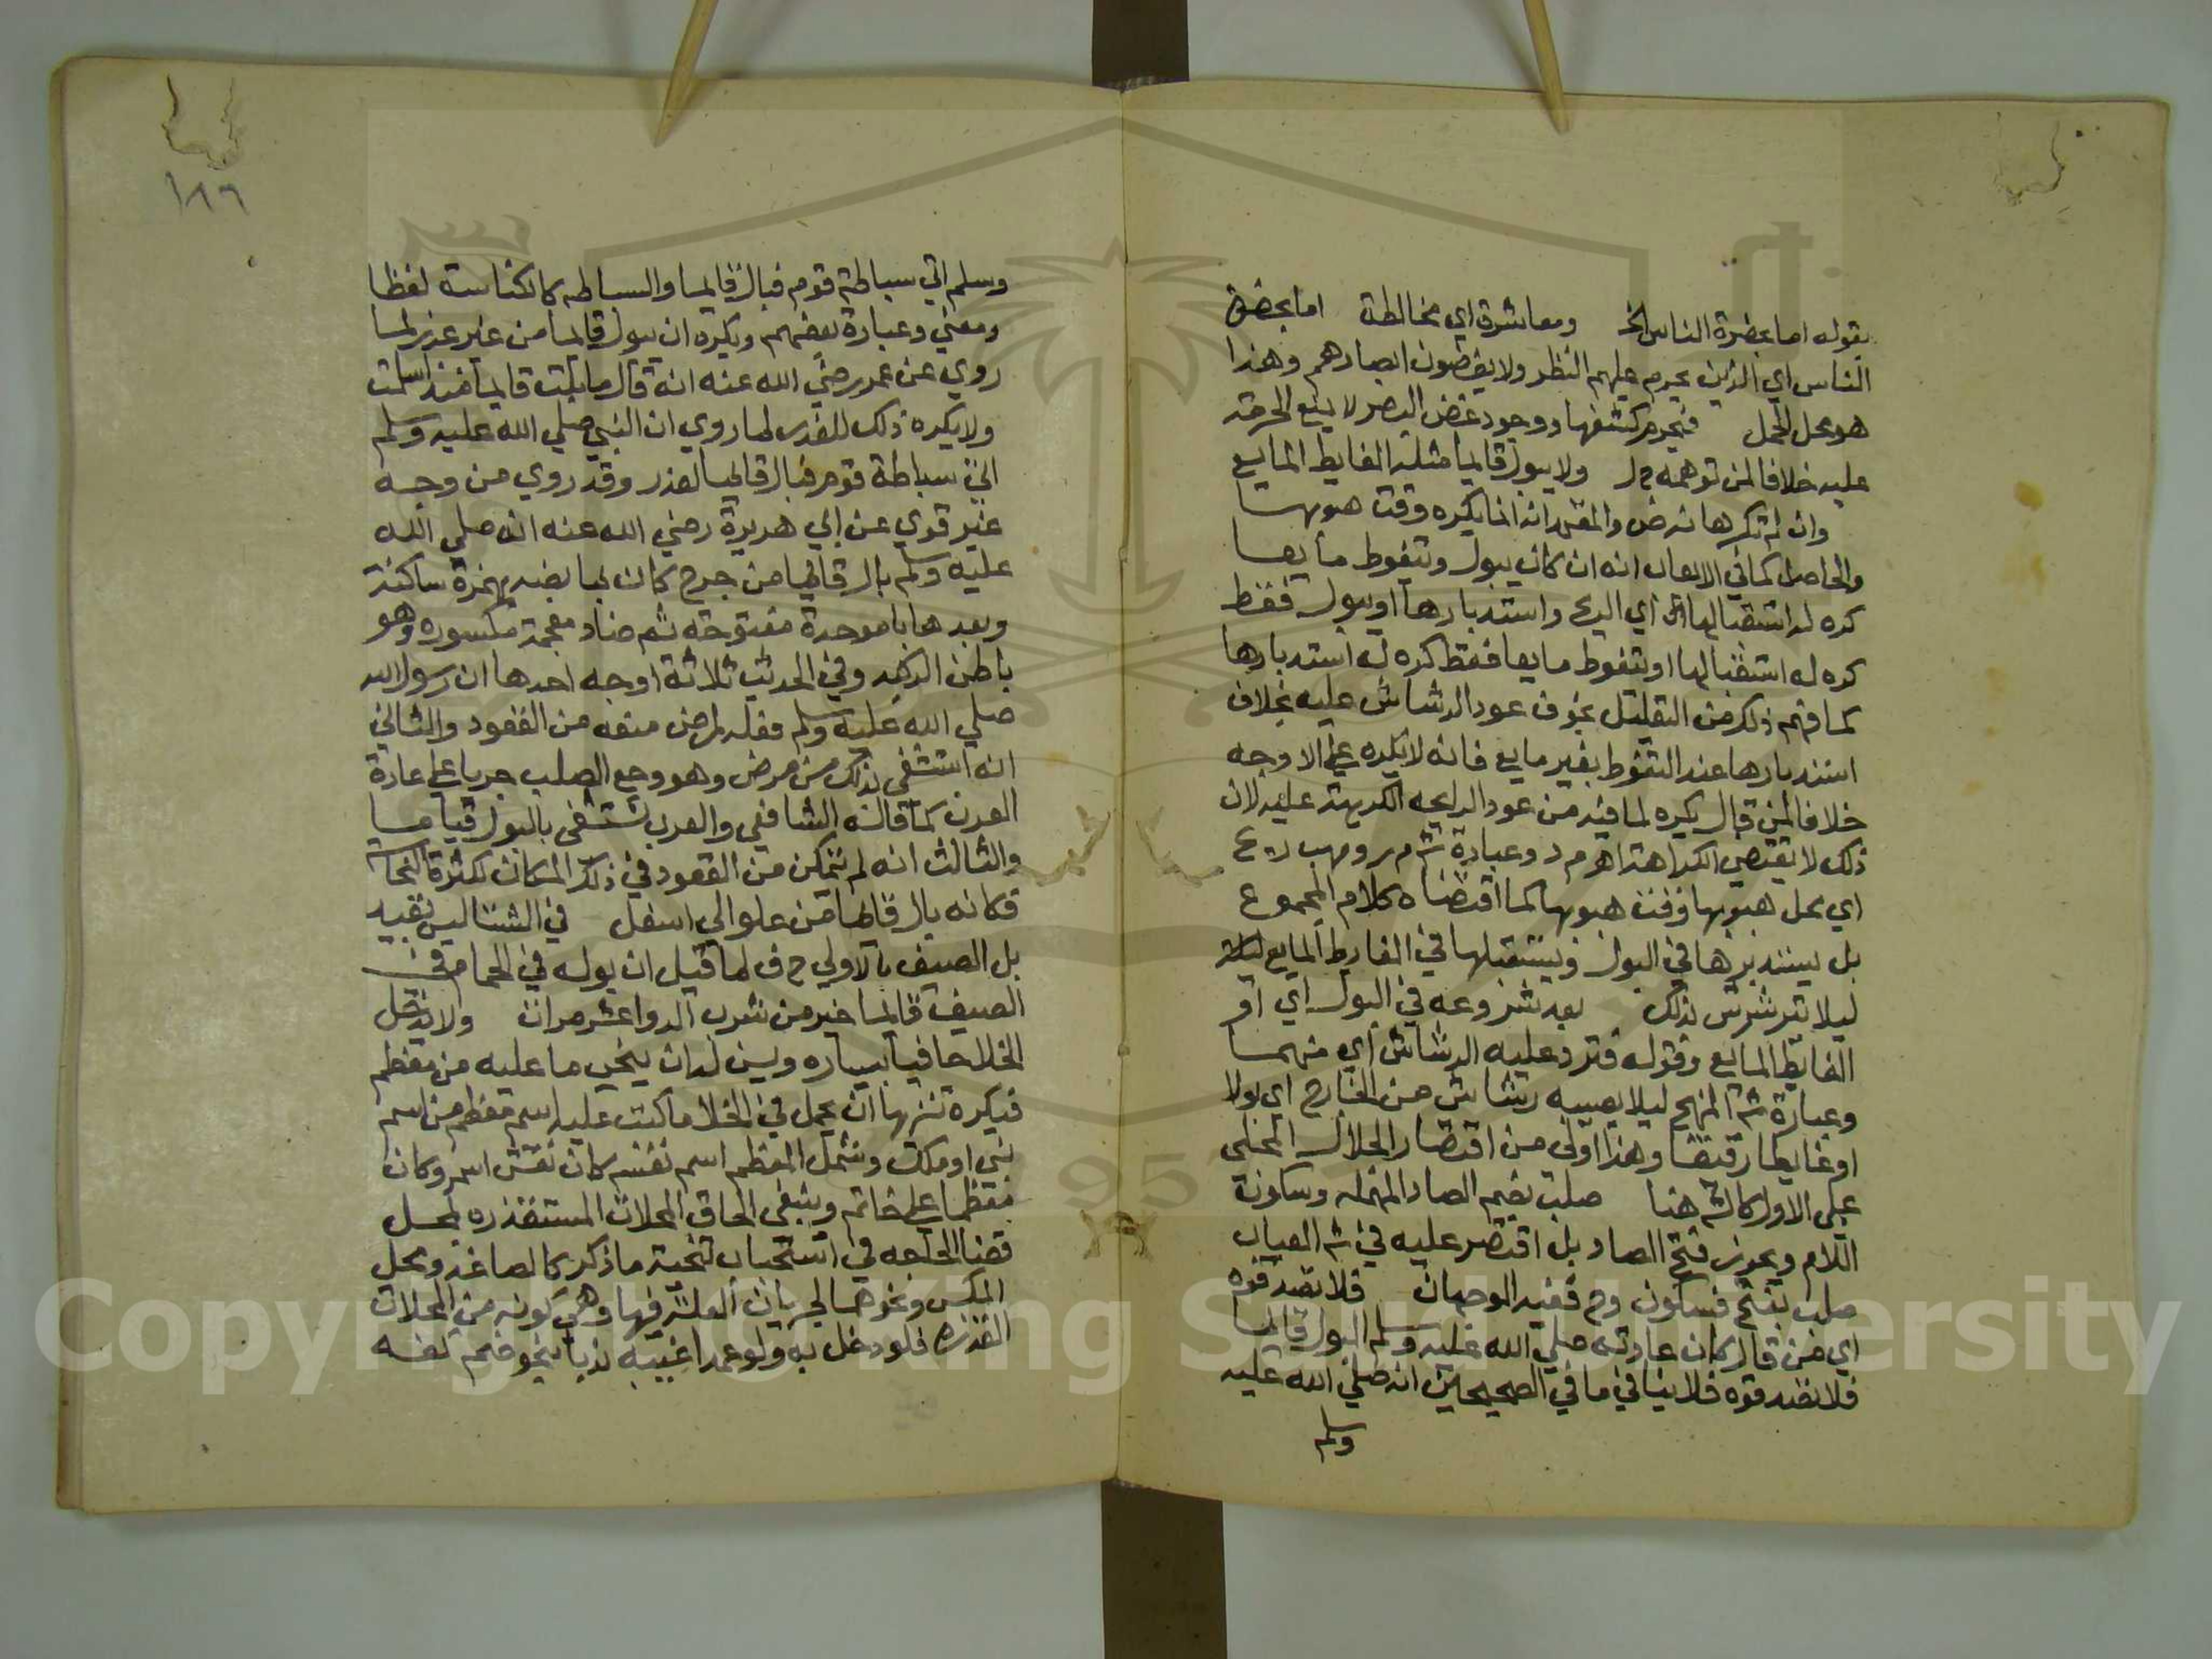 بقوله اما بحضرة الناس الخ ومعاشرة اي مخالطة اما بحضرة
الناس اي الذين يحرم عليهم النظر ولا يغضون ابصارهم وهذا
هو محل الحمل فيحرم كشفها ووجود غض البصر لا يمنع الحرمة
عليه خلافا لمن توهمه ح ل ولا يبول قايما مثله الغايط المايع
والمعتمد انه انما يكره وقت هبوبها
والحاصل كما في الايعاب انه ان كان يبول ويتغوط مايعا
كره له استقبالها اي الريح واستدبارها او يبول فقط
كره له استقبالها او يتغوط مايعا فقط كره له استدبارها
كما فهم ذلك من التعليل بخوف عود الرشاش عليه بخلاف
استدبارها عند التغوط بغير مايع فانه لا يكره علي الاوجه
خلافا لمن قال يكره لما فيه من عود الرايحه الكريهة عليه لان
ذلك لا يقتضي الكراهة اهم م د وعبارة ش م ر ومهب ريح
اي محل هبوبها وقت هبوبها كما اقتضاه كلام المجموع
بل يستدبرها في البول ويستقبلها في الغايط المايع
ليلا يترشرش بذلك بعد شروعه في البول اي او
الغايط المايع وقوله فترد عليه الرشاش اي منهما
وعبارة ش المنهج ليلا يصيبه رشاش من الخارج اي بولا
او غايطا رقيقا وهذا اولي من اقتصار الجلال المحلي
علي الاول كالش هنا صلب بضم الصاد المهمله وسكون
اللام ويجوز فتح الصاد بل اقتصر عليه في ش العباب
صلب بفتح فسكون وح ففيه الوجهان فلا تصدقوه
اي فمن قال كان عادته صلي الله عليه وسلم البول قايما
فلا تصدقوه فلا ينافي ما في الصحيحين انه صلي الله عليه
وسلم
١٨٦
وسلم اتي سباطة قوم فبال قايما والسباطه كالكناسة لفظا
ومعني وعبارة بعضهم ويكره ان يبول قايما من غير عذر لما
روي عن عمر رضي الله عنه انه قال ما بلت قايما منذ اسلمت
ولا يكره ذلك للعذر لما روي ان النبي صلي الله عليه وسلم
اتي سباطة قوم فبال قايما لعذر وقد روي من وجه
غير قوي عن ابي هريرة رضي الله عنه انه صلي الله
عليه وسلم بال قايما من جرح كان بمابضه بهمزة ساكنة
وبعدها با موحدة مفتوحة ثم ضاد معجمة مكسوره وهو
باطن الركبه وفي الحديث ثلاثة اوجه احدها ان رسول الله
صلي الله عليه وسلم فعله لمرض منعه من القعود والثاني
انه استشفي بذلك من مرض وهو وجع الصلب جريا علي عادة
العرب كما قاله الشافعي والعرب تستشفي بالبول قياما
والثالث انه لم يتمكن من القعود في ذلك المكان لكثرة النجاسه
فكانه بال قايما من علو الي اسفل في الشتا ليس بقيد
بل الصيف بالاولي ح ف لما قيل ان بوله في الحمام في
الصيف قايما خير من شرب الدوا عشر مرات ولا يدخل
الخلا حافيا بيساره ويسن له ان ينحي ما عليه من معظم
فيكره تنزيها ان يحمل في الخلا ما كتب عليه اسم معظم من اسم
نبي او ملك وشمل المعظم اسم نفسه كان نقش اسمه وكان
معظما علي خاتم وينبغي الحاق المحلات المستقذره بمحل
قضا الحاجه في استحباب تنحية ما ذكر كالصاغه ومحل
المكس ونحوهما لجريان العلة فيها وهي كونه من المحلات
القذره فلو دخل به ولو عمدا غيبه ندبا بنحو ضم كفه